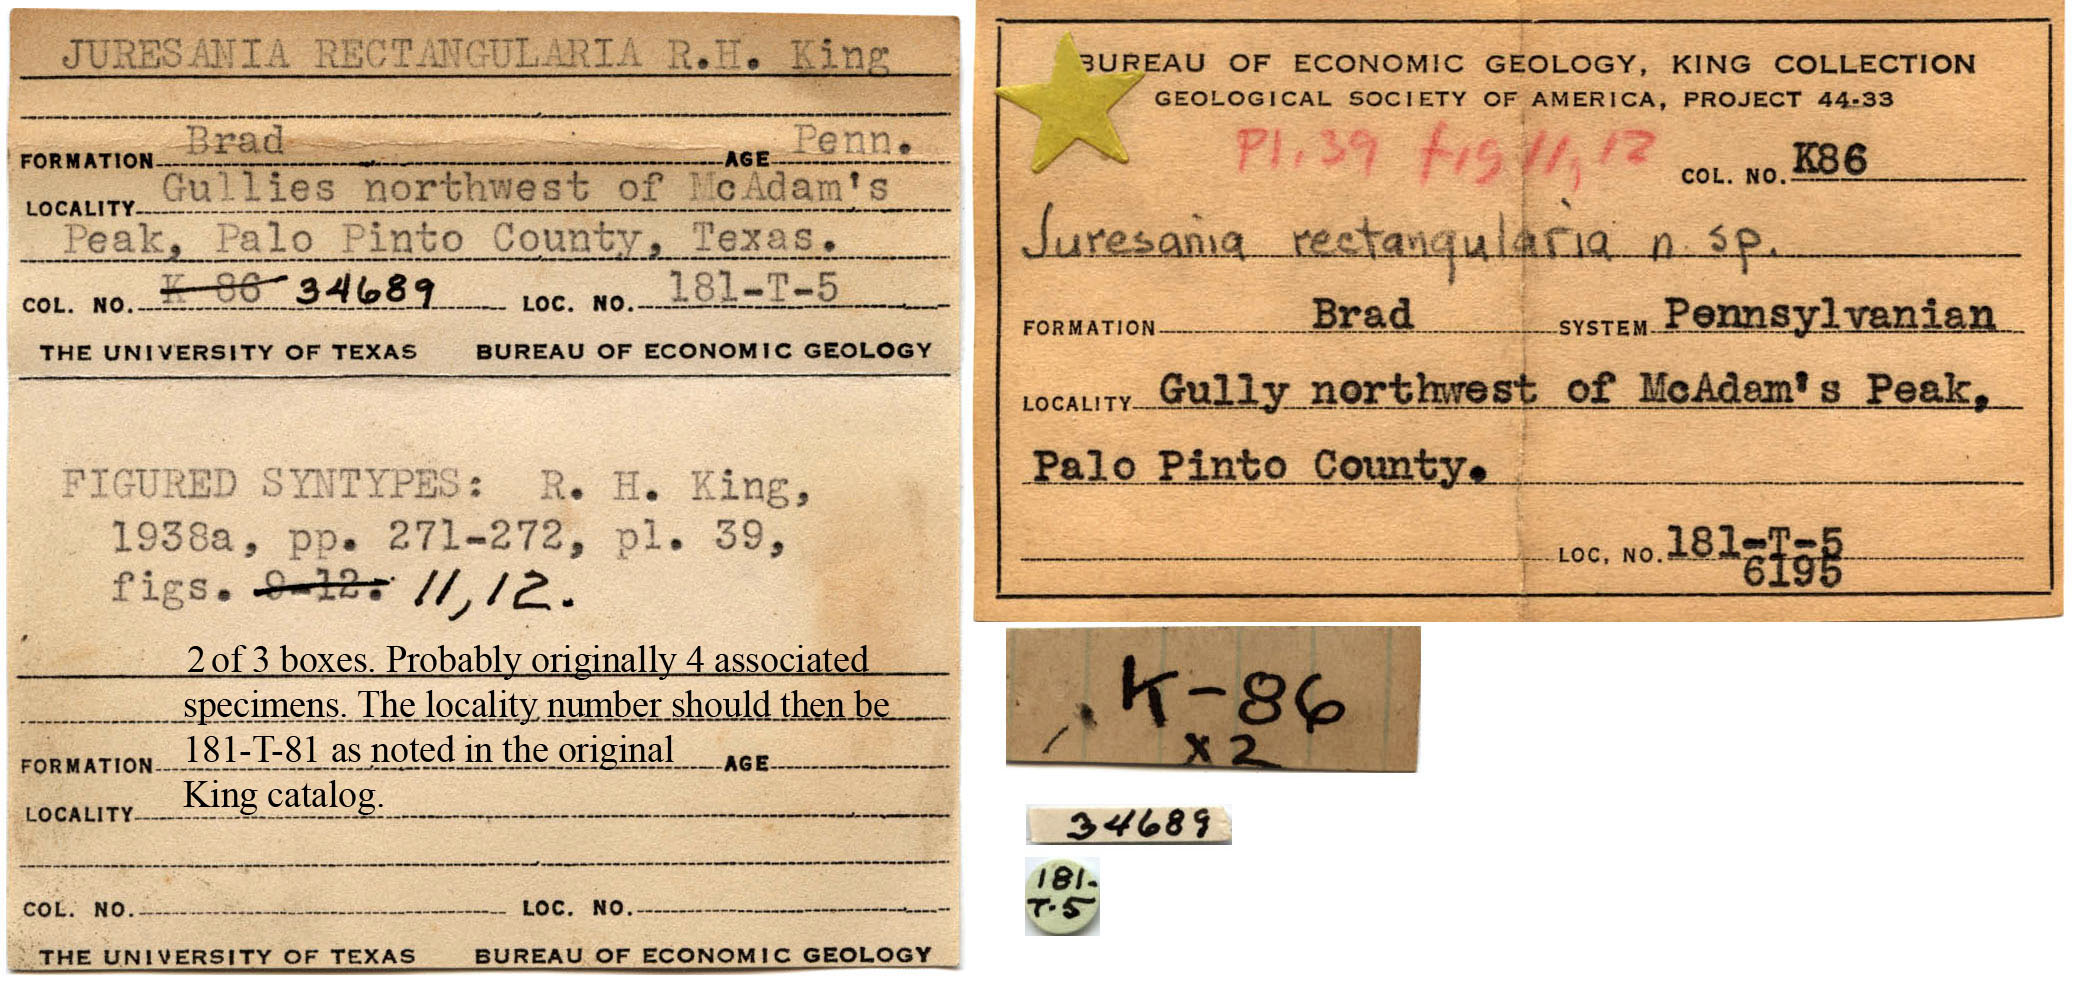 JURESANIA RECTANGULARIA R.H. King
FORMATION Brad AGE Penn.
LOCALITY Gullies northwest of McAdam's
Peak, Palo Pinto County, Texas.
COL. NO. K-86 34689 LOC. NO. 181-T-5
THE UNIVERSITY OF TEXAS BUREAU OF ECONOMIC GEOLOGY
FIGURED SYNTYPES: R. H. King,
1938a, pp. 271-272, pl. 39,
figs. 9-12. 11,12.
2 of 3 boxes. Probably originally 4 associated
specimens. The locality number should then be
181-T-81 as noted in the original
King catalog.
FORMATION AGE
LOCALITY
COL. NO. LOC. NO.
THE UNIVERSITY OF TEXAS BUREAU OF ECONOMIC GEOLOGY
BUREAU OF ECONOMIC GEOLOGY, KING COLLECTION
GEOLOGICAL SOCIETY OF AMERICA, PROJECT 44-33
Pl. 39 fig 11, 12 COL. NO. K86
Juresania rectangularia n. sp.
FORMATION Brad SYSTEM Pennsylvanian
LOCALITY Gully northwest of McAdam's Peak,
Palo Pinto County.
LOC, NO. 181-T-5
6195
K-86
x2
34689
181-
T-5